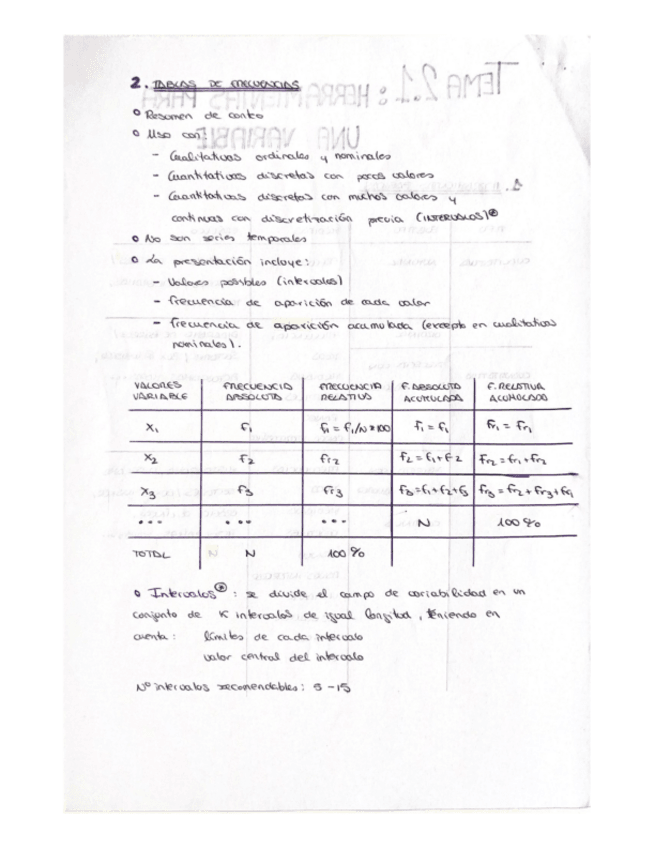 2. TABLAS DE FRECUENCIAS
Resumen de conteo
Uso con:
- Cualitativas ordinales y nominales
- Cuantitativas discretas con pocos valores
- Cuantitativas discretas con muchos valores y
continuas con discretización previa (INTERVALOS)*
No son series temporales
La presentación incluye:
- Valores posibles (intervalos)
- Frecuencia de aparición de cada valor
- Frecuencia de aparición acumulada (excepto en cualitativas
nominales).
VALORES VARIABLE | FRECUENCIA ABSOLUTA | FRECUENCIA RELATIVA | F. ABSOLUTA ACUMULADA | F. RELATIVA ACUMULADA
X1 | f1 | f1 = f1/N*100 | f1 = f1 | fr1 = fr1
X2 | f2 | fr2 | f2 = f1+f2 | fr2 = fr1+fr2
X3 | f3 | fr3 | f3 = f1+f2+f3 | fr3 = fr2+fr3+fr1
... | ... | ... | N | 100%
TOTAL | N | 100%
Intervalos*: se divide el campo de variabilidad en un
conjunto de K intervalos de igual longitud, teniendo en
cuenta: límites de cada intervalo
valor central del intervalo
Nº intervalos recomendables: 5-15
TEMA 2.1: HERRAMIENTAS PARA
UNA VARIABLE